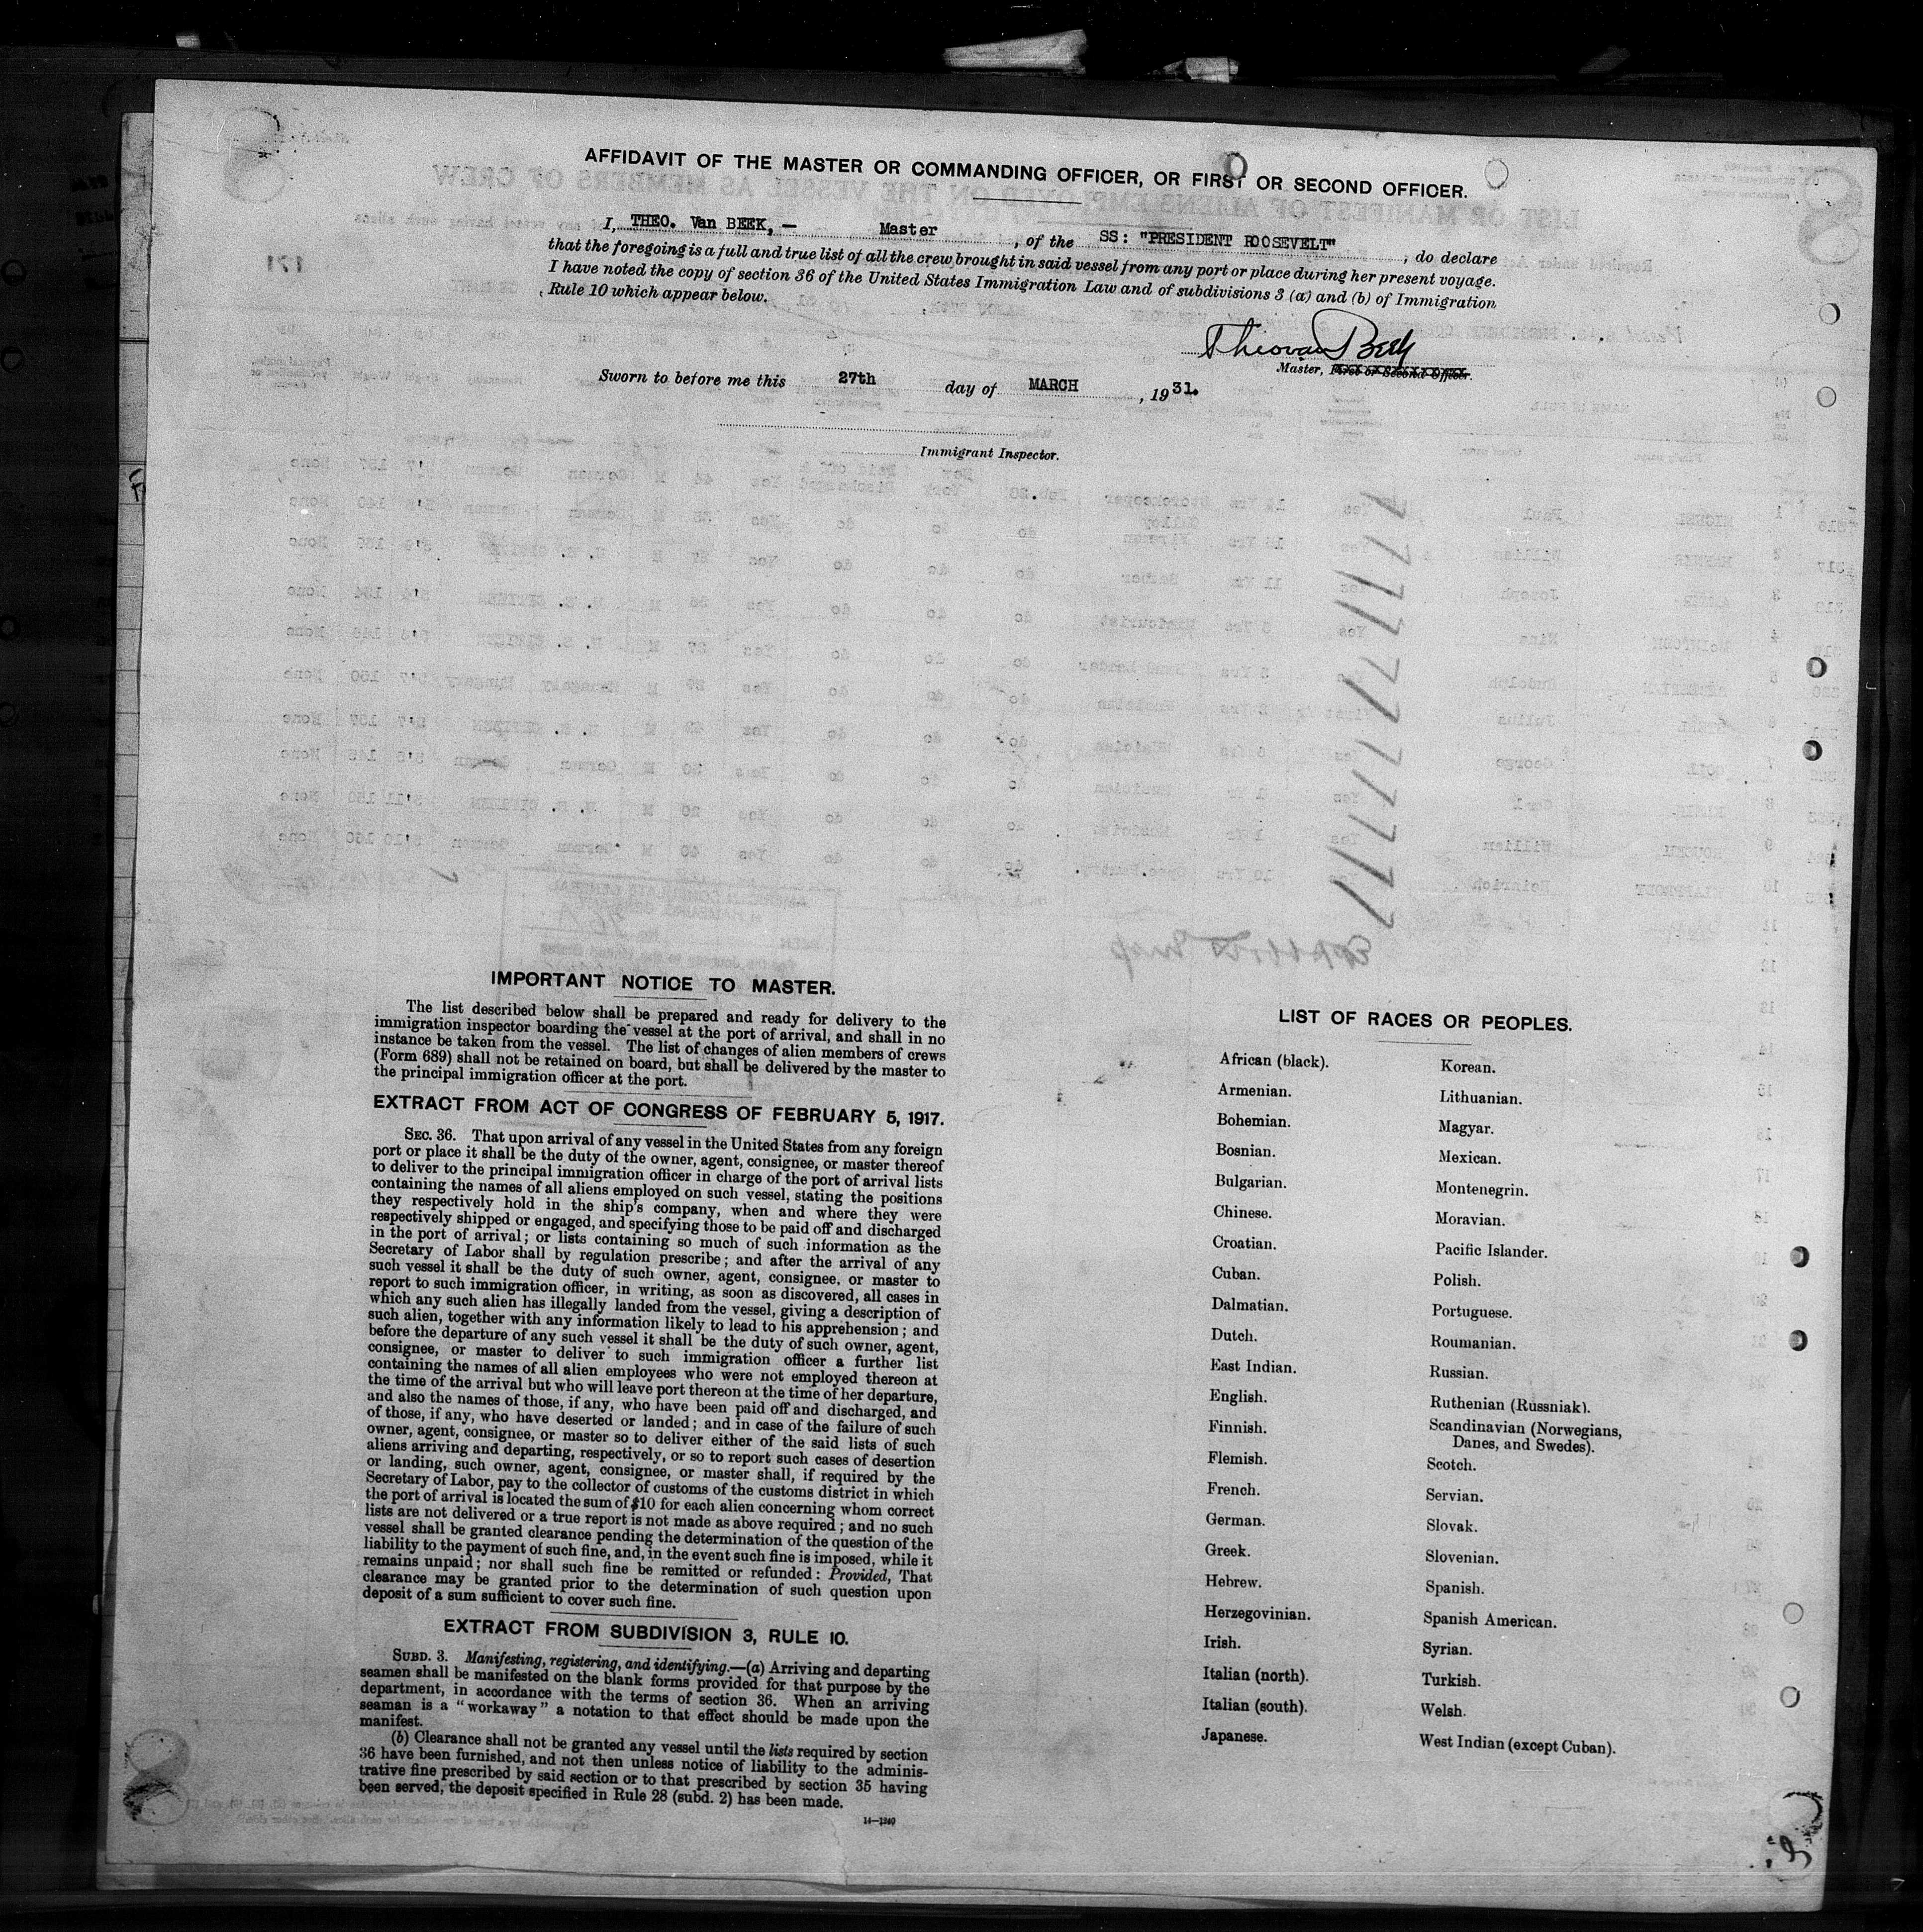 AFFIDAVIT OF THE MASTER OR COMMANDING OFFICER, OR FIRST OR SECOND OFFICER.
I, THEO. Van BEEK, — Master, of the SS: "PRESIDENT ROOSEVELT", do declare
that the foregoing is a full and true list of all the crew brought in said vessel from any port or place during her present voyage.
I have noted the copy of section 36 of the United States Immigration Law and of subdivisions 3 (a) and (b) of Immigration
Rule 10 which appear below.
Theo van Beek
Master, First or Second Officer.
Sworn to before me this 27th day of MARCH, 1931.
Immigrant Inspector.
IMPORTANT NOTICE TO MASTER.
The list described below shall be prepared and ready for delivery to the
immigration inspector boarding the vessel at the port of arrival, and shall in no
instance be taken from the vessel. The list of changes of alien members of crews
(Form 689) shall not be retained on board, but shall be delivered by the master to
the principal immigration officer at the port.
EXTRACT FROM ACT OF CONGRESS OF FEBRUARY 5, 1917.
SEC. 36. That upon arrival of any vessel in the United States from any foreign
port or place it shall be the duty of the owner, agent, consignee, or master thereof
to deliver to the principal immigration officer in charge of the port of arrival lists
containing the names of all aliens employed on such vessel, stating the positions
they respectively hold in the ship's company, when and where they were
respectively shipped or engaged, and specifying those to be paid off and discharged
in the port of arrival; or lists containing so much of such information as the
Secretary of Labor shall by regulation prescribe; and after the arrival of any
such vessel it shall be the duty of such owner, agent, consignee, or master to
report to such immigration officer, in writing, as soon as discovered, all cases in
which any such alien has illegally landed from the vessel, giving a description of
such alien, together with any information likely to lead to his apprehension; and
before the departure of any such vessel it shall be the duty of such owner, agent,
consignee, or master to deliver to such immigration officer a further list
containing the names of all alien employees who were not employed thereon at
the time of the arrival but who will leave port thereon at the time of her departure,
and also the names of those, if any, who have been paid off and discharged, and
of those, if any, who have deserted or landed; and in case of the failure of such
owner, agent, consignee, or master so to deliver either of the said lists of such
aliens arriving and departing, respectively, or so to report such cases of desertion
or landing, such owner, agent, consignee, or master shall, if required by the
Secretary of Labor, pay to the collector of customs of the customs district in which
the port of arrival is located the sum of $10 for each alien concerning whom correct
lists are not delivered or a true report is not made as above required; and no such
vessel shall be granted clearance pending the determination of the question of the
liability to the payment of such fine, and, in the event such fine is imposed, while it
remains unpaid; nor shall such fine be remitted or refunded: Provided, That
clearance may be granted prior to the determination of such question upon
deposit of a sum sufficient to cover such fine.
EXTRACT FROM SUBDIVISION 3, RULE 10.
SUBD. 3. Manifesting, registering, and identifying.—(a) Arriving and departing
seamen shall be manifested on the blank forms provided for that purpose by the
department, in accordance with the terms of section 36. When an arriving
seaman is a "workaway" a notation to that effect should be made upon the
manifest.
(b) Clearance shall not be granted any vessel until the lists required by section
36 have been furnished, and not then unless notice of liability to the adminis-
trative fine prescribed by said section or to that prescribed by section 35 having
been served, the deposit specified in Rule 28 (subd. 2) has been made.
14—1240
LIST OF RACES OR PEOPLES.
African (black).
Armenian.
Bohemian.
Bosnian.
Bulgarian.
Chinese.
Croatian.
Cuban.
Dalmatian.
Dutch.
East Indian.
English.
Finnish.
Flemish.
French.
German.
Greek.
Hebrew.
Herzegovinian.
Irish.
Italian (north).
Italian (south).
Japanese.
Korean.
Lithuanian.
Magyar.
Mexican.
Montenegrin.
Moravian.
Pacific Islander.
Polish.
Portuguese.
Roumanian.
Russian.
Ruthenian (Russniak).
Scandinavian (Norwegians,
Danes, and Swedes).
Scotch.
Servian.
Slovak.
Slovenian.
Spanish.
Spanish American.
Syrian.
Turkish.
Welsh.
West Indian (except Cuban).